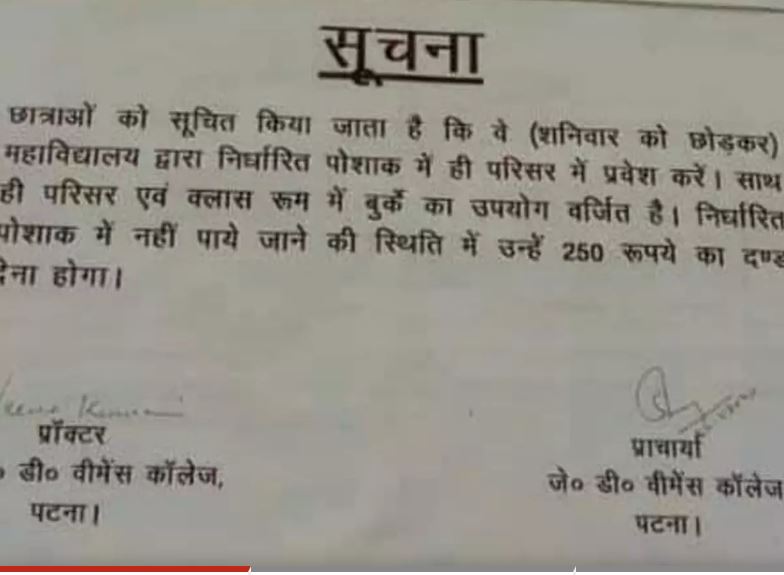 सूचना
छात्राओं को सूचित किया जाता है कि वे (शनिवार को छोड़कर)
महाविद्यालय द्वारा निर्धारित पोशाक में ही परिसर में प्रवेश करें। साथ
ही परिसर एवं क्लास रूम में बुर्के का उपयोग वर्जित है। निर्धारित
पोशाक में नहीं पाये जाने की स्थिति में उन्हें 250 रूपये का दण्ड
देना होगा।
प्रॉक्टर
डी० वीमेंस कॉलेज,
पटना।
प्राचार्या
जे० डी० वीमेंस कॉलेज
पटना।